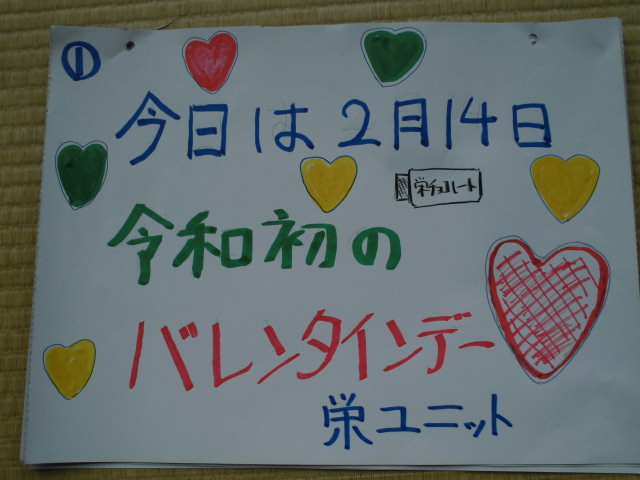 ①
今日は2月14日
栄チョコレート
令和初の
バレンタインデー
栄ユニット